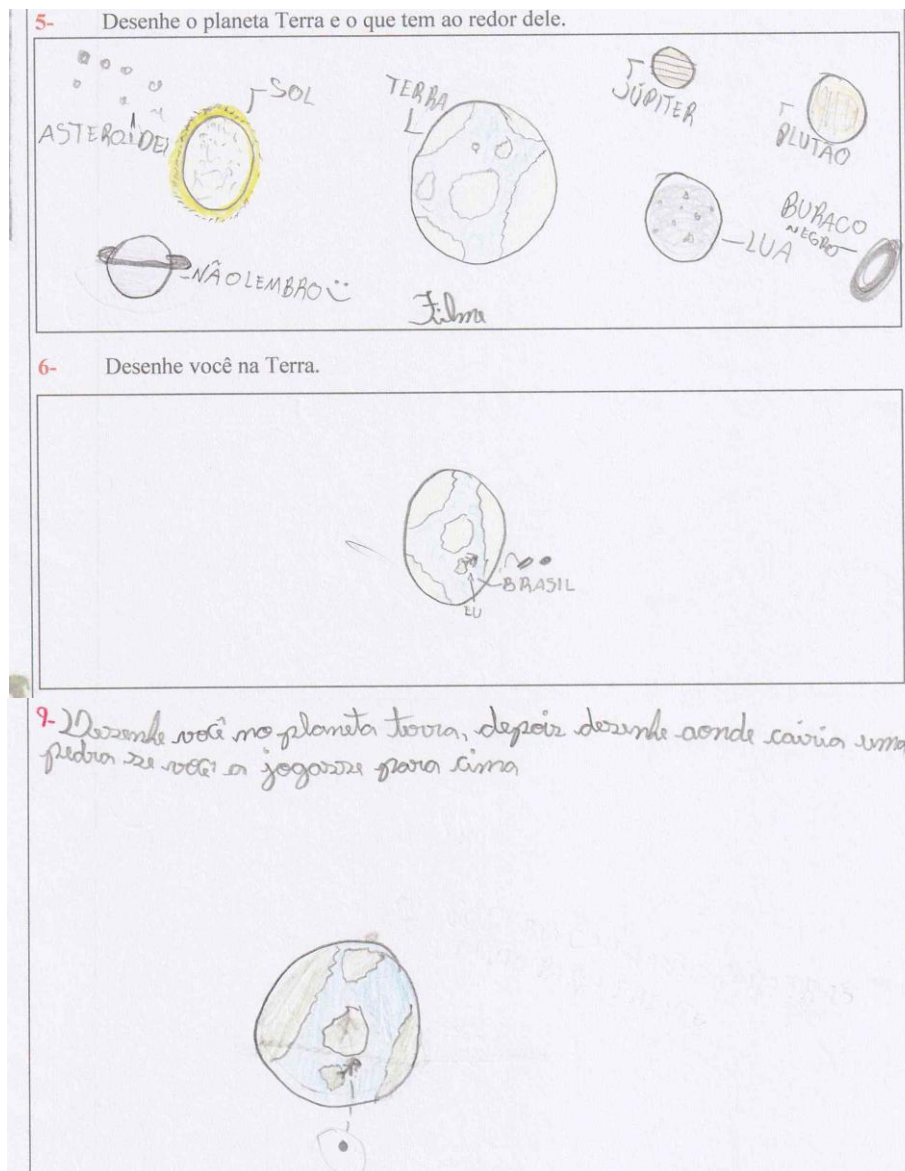 5- Desenhe o planeta Terra e o que tem ao redor dele.
ASTEROIDE
SOL
TERRA
JÚPITER
PLUTÃO
NÃO LEMBRO
LUA
BURACO
NEGRO
Filme
6- Desenhe você na Terra.
BRASIL
EU
9- Desenhe você no planeta terra, depois desenhe aonde cairia uma
pedra se você a jogasse para cima